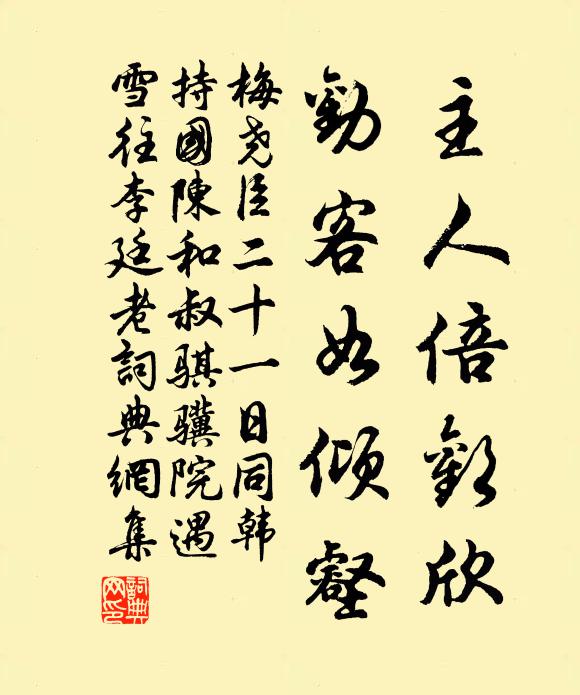 主人倍歡欣
勸客如傾壑
梅尧臣二十一日同韩
持國陳和叔骐骥院遇
雪往李廷老詞典網集
詞典網印